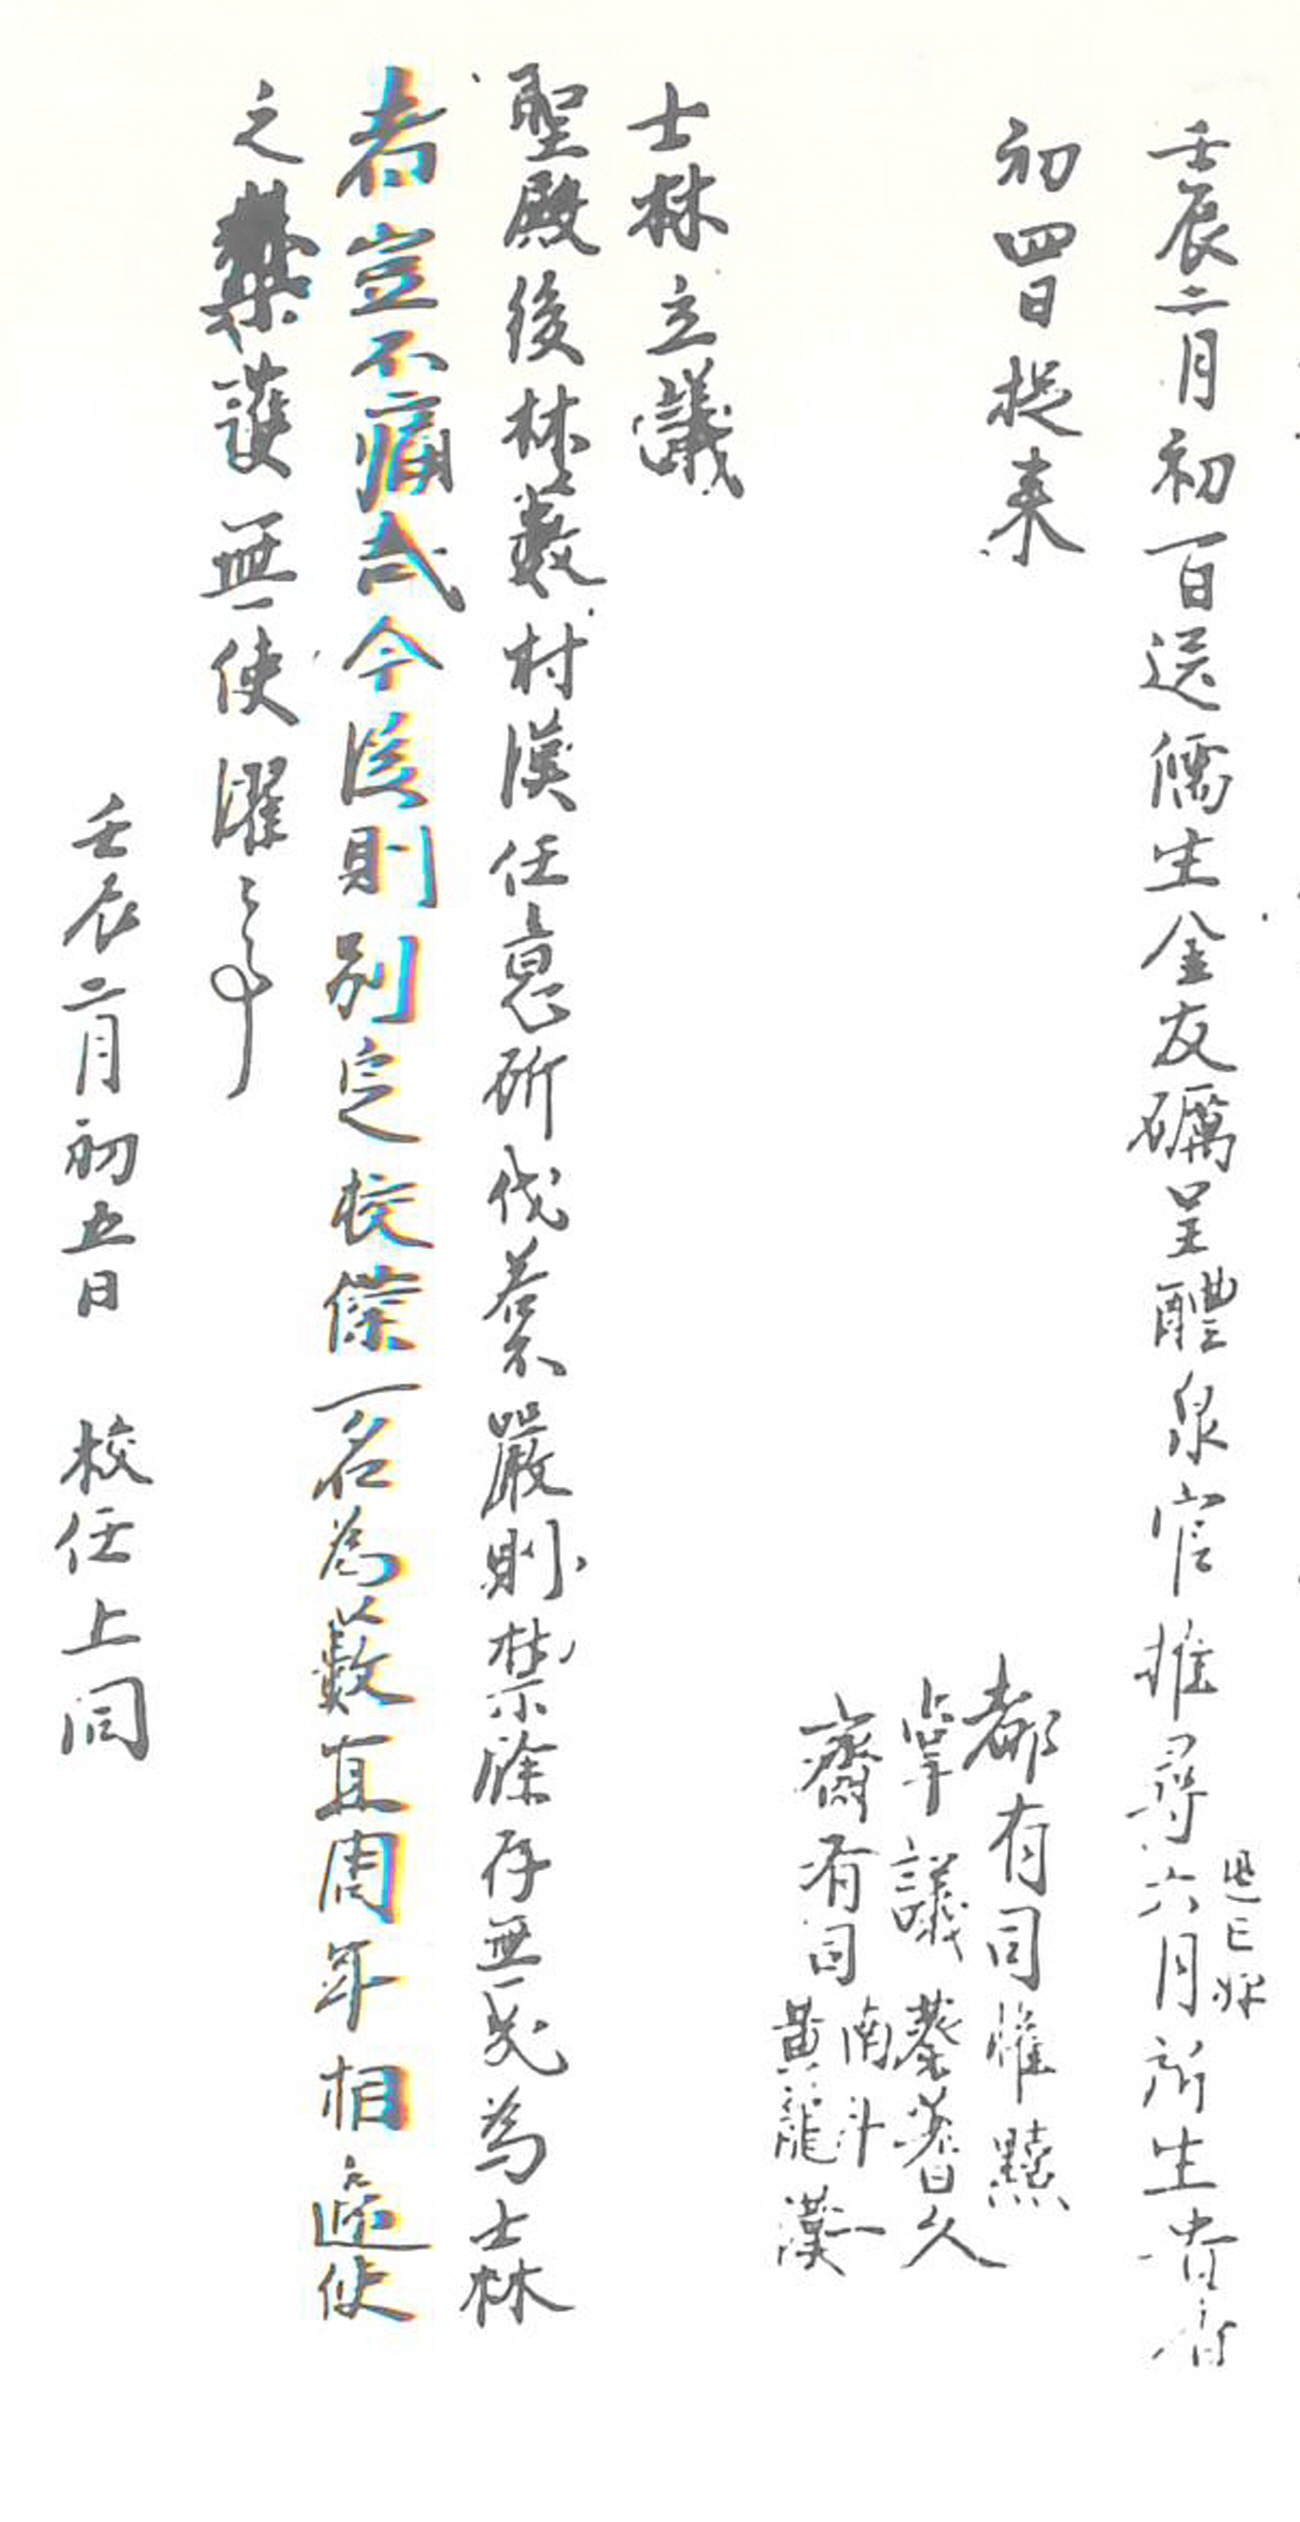 壬辰二月初一日送儒生金友礪呈醴泉官推尋六月所生者
初四日捉来
都有司權點
掌議蔡蓍久
齋有司南斗一
黃龍漢
士林立議
聖殿後林藪村漢任意斫伐若不嚴則禁除存無幾為士林
者豈不痛哉今後則別定校傑一名為藪直周年相遞使
之禁護無使濯濯事
壬辰二月初五日 校任上同